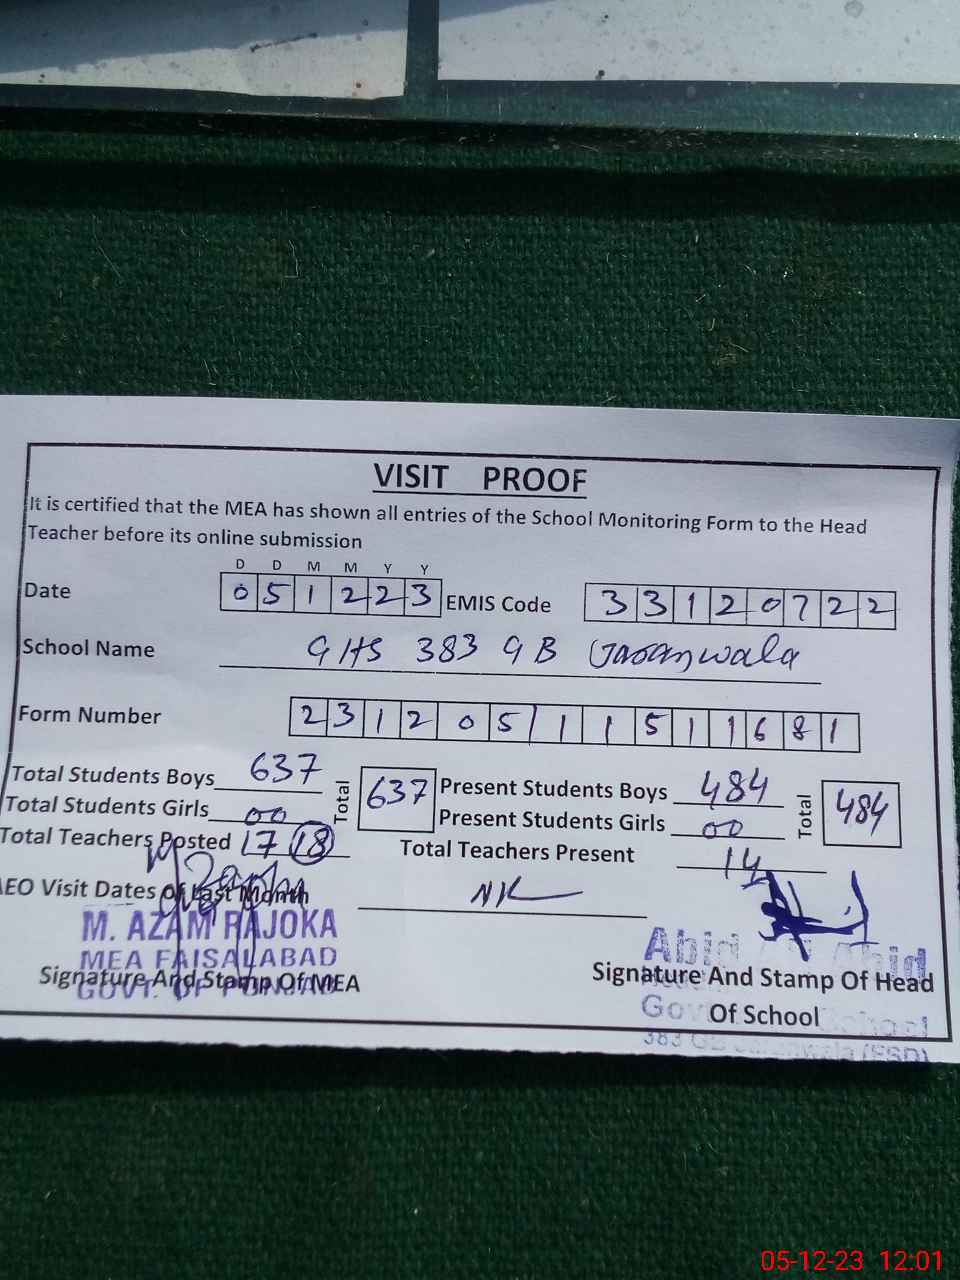 VISIT PROOF
It is certified that the MEA has shown all entries of the School Monitoring Form to the Head
Teacher before its online submission
D D M M Y Y
Date 0 5 1 2 2 3 EMIS Code 3 3 1 2 0 7 2 2
School Name GHS 383 GB
Form Number 2 3 1 2 0 5 1 1 5 1 1 6 8 1
Total Students Boys 637 Total 637 Present Students Boys 484 Total 484
Total Students Girls 00 Present Students Girls 00
Total Teachers Posted 17 18 Total Teachers Present 14
AEO Visit Dates Of Last Month
M. AZAM RAJOKA
MEA FAISALABAD
GOVT. OF PUNJAB
Signature And Stamp Of MEA
Abid Abid
Signature And Stamp Of Head
Of School
383 GB
05-12-23 12:01